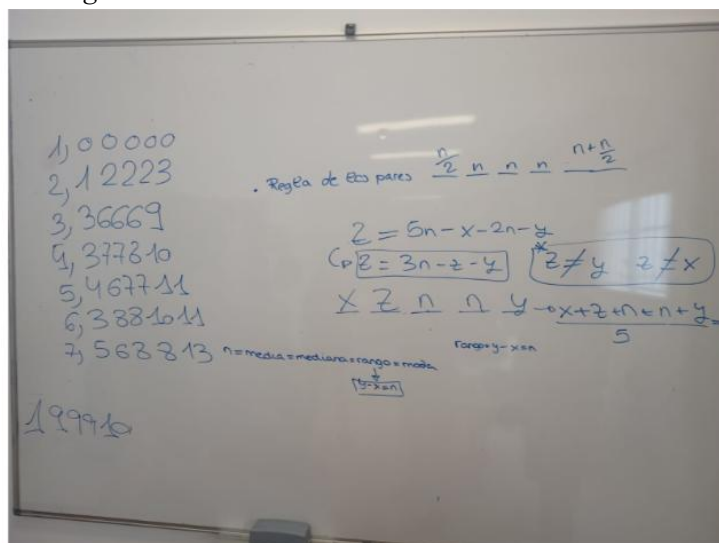 1, 00000
2, 12223
3, 36669
4, 377810
5, 467711
6, 3881011
7, 568813
n=media=mediana=rango=moda
y-x=n
199910
. Regla de los pares n/2 n n n n+n/2
z = 5n-x-2n-y
z = 3n-z-y
* z≠y z≠x
x z n n y → x+z+n+n+y/5 =
rango=y-x=n